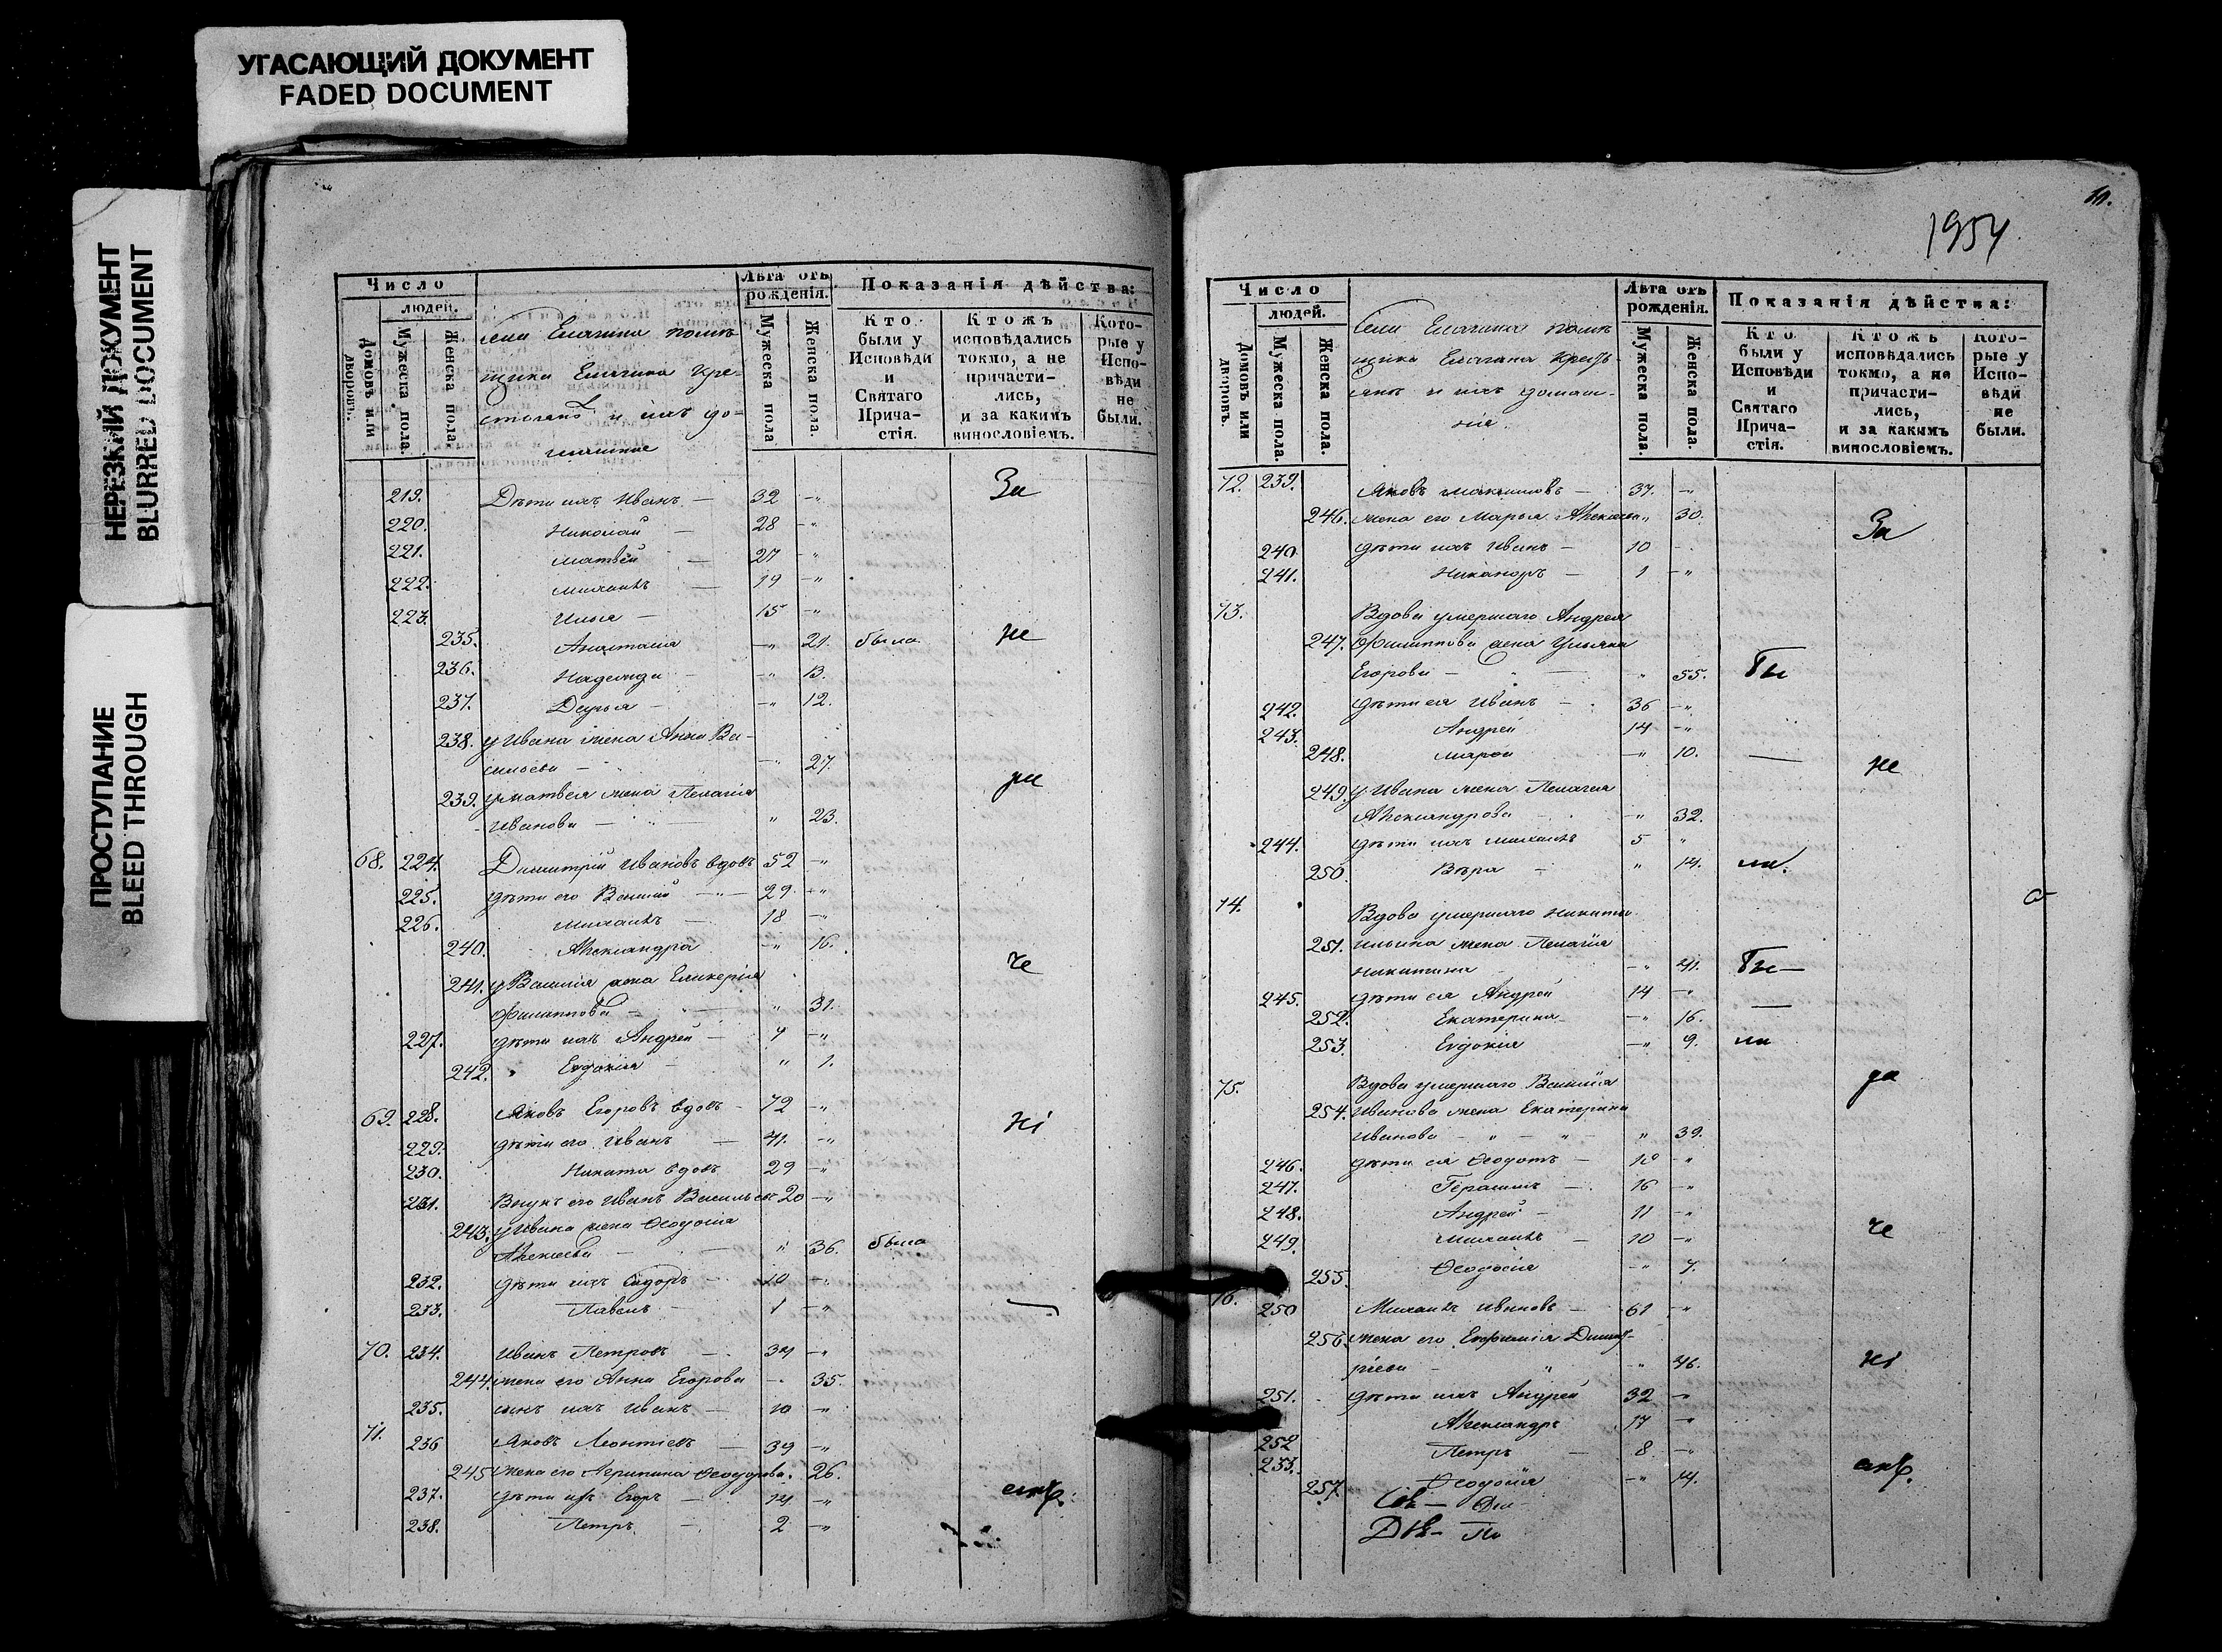 УГАСАЮЩИЙ ДОКУМЕНТ
FADED DOCUMENT
НЕРЕЗКИЙ ДОКУМЕНТ
BLURRED DOCUMENT
ПРОСТУПАНИЕ
BLEED THROUGH
Число
людей.
Домовъ или дворовъ.
Мужеска пола.
Женска пола.
Села Елагина помѣ-
щика Елагина кре-
стьянѣ и ихъ до-
машніе
Лѣта отъ рожденія.
Мужеска пола
Женска пола.
Показанія дѣйства:
Кто были у Исповѣди и Святаго Прича-стія.
Ктожъ исповѣдались токмо, а не причасти-лись, и за какимъ винословіемъ.
Кото-рые у Испо-вѣди не были.
219. Дѣти ихъ Иванъ — 32 — "
За
220. Николай — 28 — "
221. Матвей — 27 — "
222. Михаилъ — 19 — "
223. Илья — 15 — "
235. Анастасія — " 21. была
не
236. Надежда — " 13.
237. Дарья — " 12.
238. у Ивана жена Анна Ва-
сильева — " 27.
239. у Матвея жена Пелагія
Иванова — " 23.
68. 224. Димитрій Ивановъ вдовъ 52 — "
225. дѣти его Василій — 29 — "
226. Михаилъ — 18 — "
240. Александра — " 16.
че
241. у Василія жена Гликерія
Филиппова — " 31.
227. дѣти ихъ Андрей — 4 — "
242. Евдокія — " 1.
69. 228. Яковъ Егоровъ вдовъ — 72 — "
ні
229. дѣти его Иванъ — 41. — "
230. Никита вдовъ 29 — "
231. Внукъ его Иванъ Васильевъ 20 — "
243. у Ивана жена Ѳеодосія
Алексеева — " 36. была
232. дѣти ихъ Сидоръ — 10 — "
233. Павелъ — 1 — "
70. 234. Иванъ Петровъ — 34 — "
244. жена его Анна Егорова — 35.
235. сынъ ихъ Иванъ — 10 — "
71. 236 Яковъ Леонтіевъ — 39 — "
245 жена его Агрипина Ѳеодорова. 26.
237. дѣти ихъ Егоръ — 14 — "
238. Петръ — 2 — "
10.
1954
Число
людей.
Домовъ или дворовъ.
Мужеска пола.
Женска пола.
Села Елагина помѣ
щика Елагина кресть-
янъ и ихъ домаш-
ніе.
Лѣта отъ рожденія.
Мужеска пола.
Женска пола.
Показанія дѣйства:
Кто были у Исповѣди и Святаго Прича-стія.
Ктожъ исповѣдались токмо, а не причасти-лись, и за какимъ винословіемъ.
Кото-рые у Испо-вѣди не были.
72. 239. Яковъ Максимовъ — 37. — "
246. жена его Марья Алексеева " 30.
За
240. дѣти ихъ Иванъ — 10
241. Никаноръ — 1 — "
73. Вдова умершаго Андрея
247. Филиппова жена Ульяна
Егорова — " 55. Бы
242. дѣти ея Иванъ — 36 — "
243. Андрей 14 — "
248. Марѳа — " 10. —
не
249. у Ивана жена Пелагея
Александрова — " 32.
244. дѣти ихъ Михаилъ 5 "
250. Вѣра — " 14. ли.
74. Вдова умершаго Никиты
251. Ильина жена Пелагія
Никитина — " 41. Бы —
245. дѣти ея Андрей 14 — " —
252. Екатерина — " 16.
253. Евдокія — " 9. ли
75. Вдова умершаго Василія
да
254. Иванова жена Екатерина
Иванова — " — " — " 39.
246. дѣти ея Ѳеодотъ —
247. Герасимъ — 16 — "
248. Андрей — 11 — "
че
249. Михаилъ — 10 — "
255. Ѳеодосія — " 7.
76. 250 Михаилъ Ивановъ — 61 — "
256. жена его Евфимія Димит-
ріева — " — " 46.
ні
251. дѣти ихъ Андрей 32 — "
Александръ 17 — "
252 Петръ — 8 — "
253.
257. Ѳеодосія — " 14.